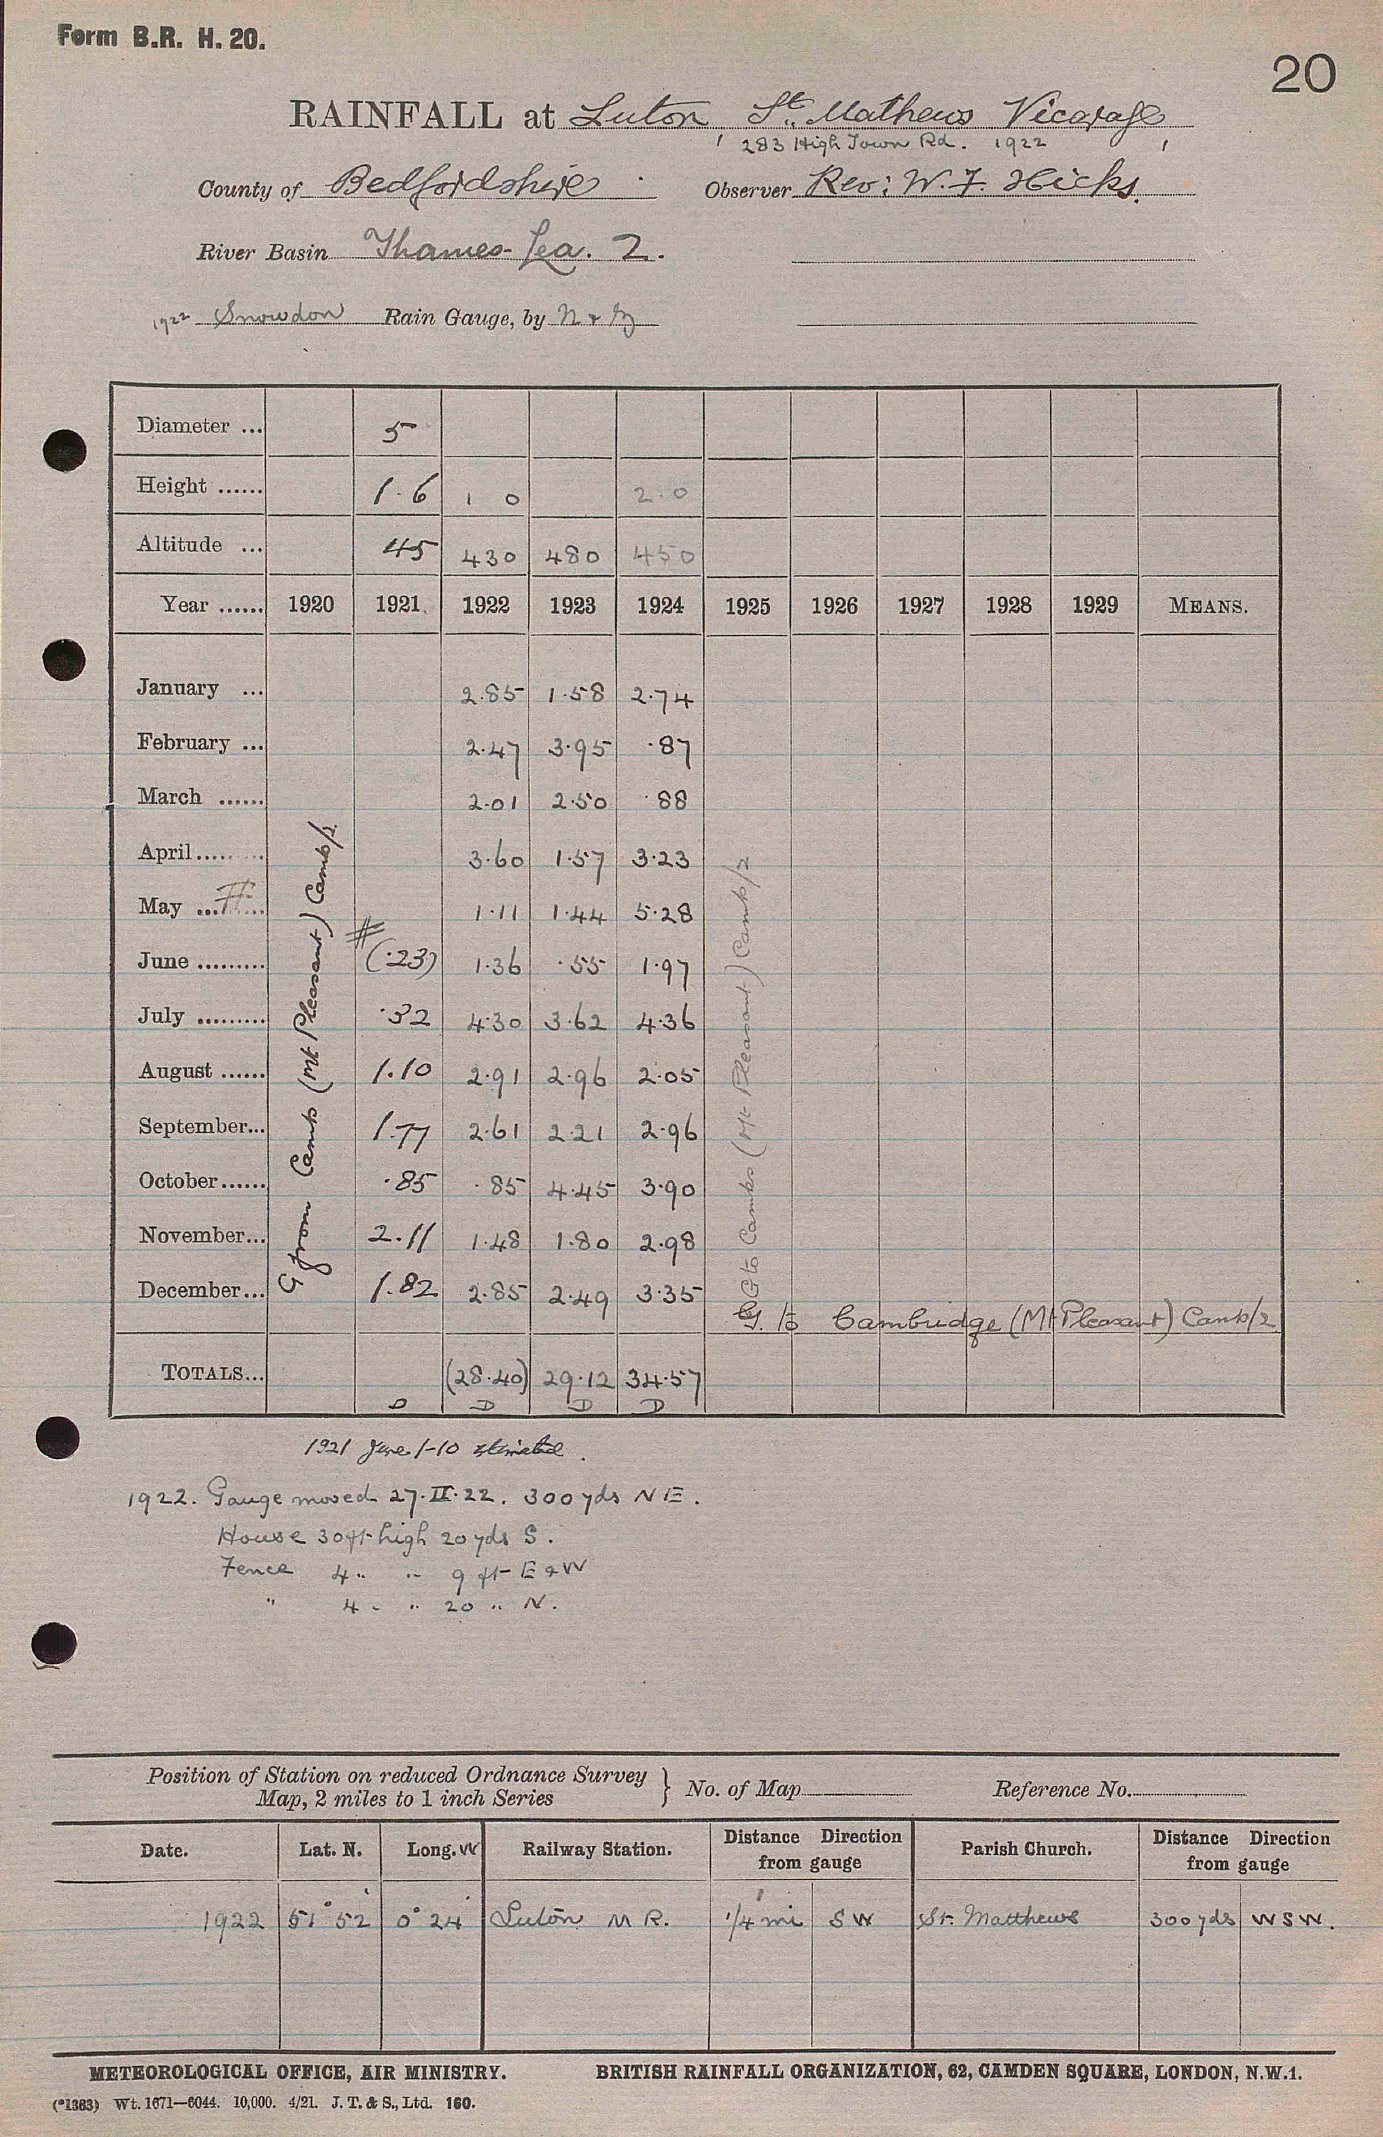 Form B.R. H. 20.
20
RAINFALL at Luton, St. Mathews Vicarage
283 High Town Rd. 1922
County of Bedfordshire Observer Rev: W. F. Hicks.
River Basin Thames-Lea. 2.
1922 Snowdon Rain Gauge, by N & Z
Diameter ... 5
Height ...... 1.6 1 0 2.0
Altitude ... 45 430 480 450
Year ...... 1920 1921 1922 1923 1924 1925 1926 1927 1928 1929 MEANS.
January ... 2.85 1.58 2.74
February ... 2.47 3.95 .87
March ...... 2.01 2.50 .88
April......... 3.60 1.57 3.23
May ...#... 1.11 1.44 5.28
#
June ......... (.23) 1.36 .55 1.97
July ......... .32 4.30 3.62 4.36
August ...... 1.10 2.91 2.96 2.05
September... 1.77 2.61 2.21 2.96
October...... .85 .85 4.45 3.90
November... 2.11 1.48 1.80 2.98
December... 1.82 2.85 2.49 3.35
G from Camb (Mt Pleasant) Camb/2
G to Cambs (Mt Pleasant) Camb/2
G. to Cambridge (Mt Pleasant) Camb/2
TOTALS... (28.40) 29.12 34.57
D D D D
1921 June 1-10 estimated.
1922. Gauge moved 27.II.22. 300 yds NE.
House 30 ft high 20 yds S.
Fence 4 " " 9 ft E & W
" 4 " " 20 " N.
Position of Station on reduced Ordnance Survey
Map, 2 miles to 1 inch Series } No. of Map Reference No.
Date. Lat. N. Long. W Railway Station. Distance Direction from gauge Parish Church. Distance Direction from gauge
1922 51° 52' 0° 24' Luton M R. 1/4 mi S W St. Matthews 300 yds W S W.
METEOROLOGICAL OFFICE, AIR MINISTRY. BRITISH RAINFALL ORGANIZATION, 62, CAMDEN SQUARE, LONDON, N.W.1.
(*1383) Wt. 1671—6044. 10,000. 4/21. J. T. & S., Ltd. 160.